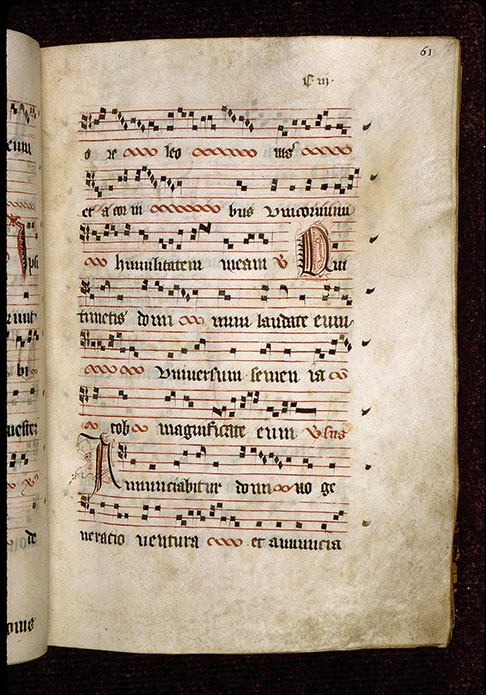 61
C iij.
o re leo nis
et a cor ni bus unicornium
humilitatem meam v Qui
timetis domi num laudate eum
universum semen ia
cob magnificate eum
Annunciabitur domi no ge
neratio ventura et annuncia
eum
psi
runt
bi
vester
de